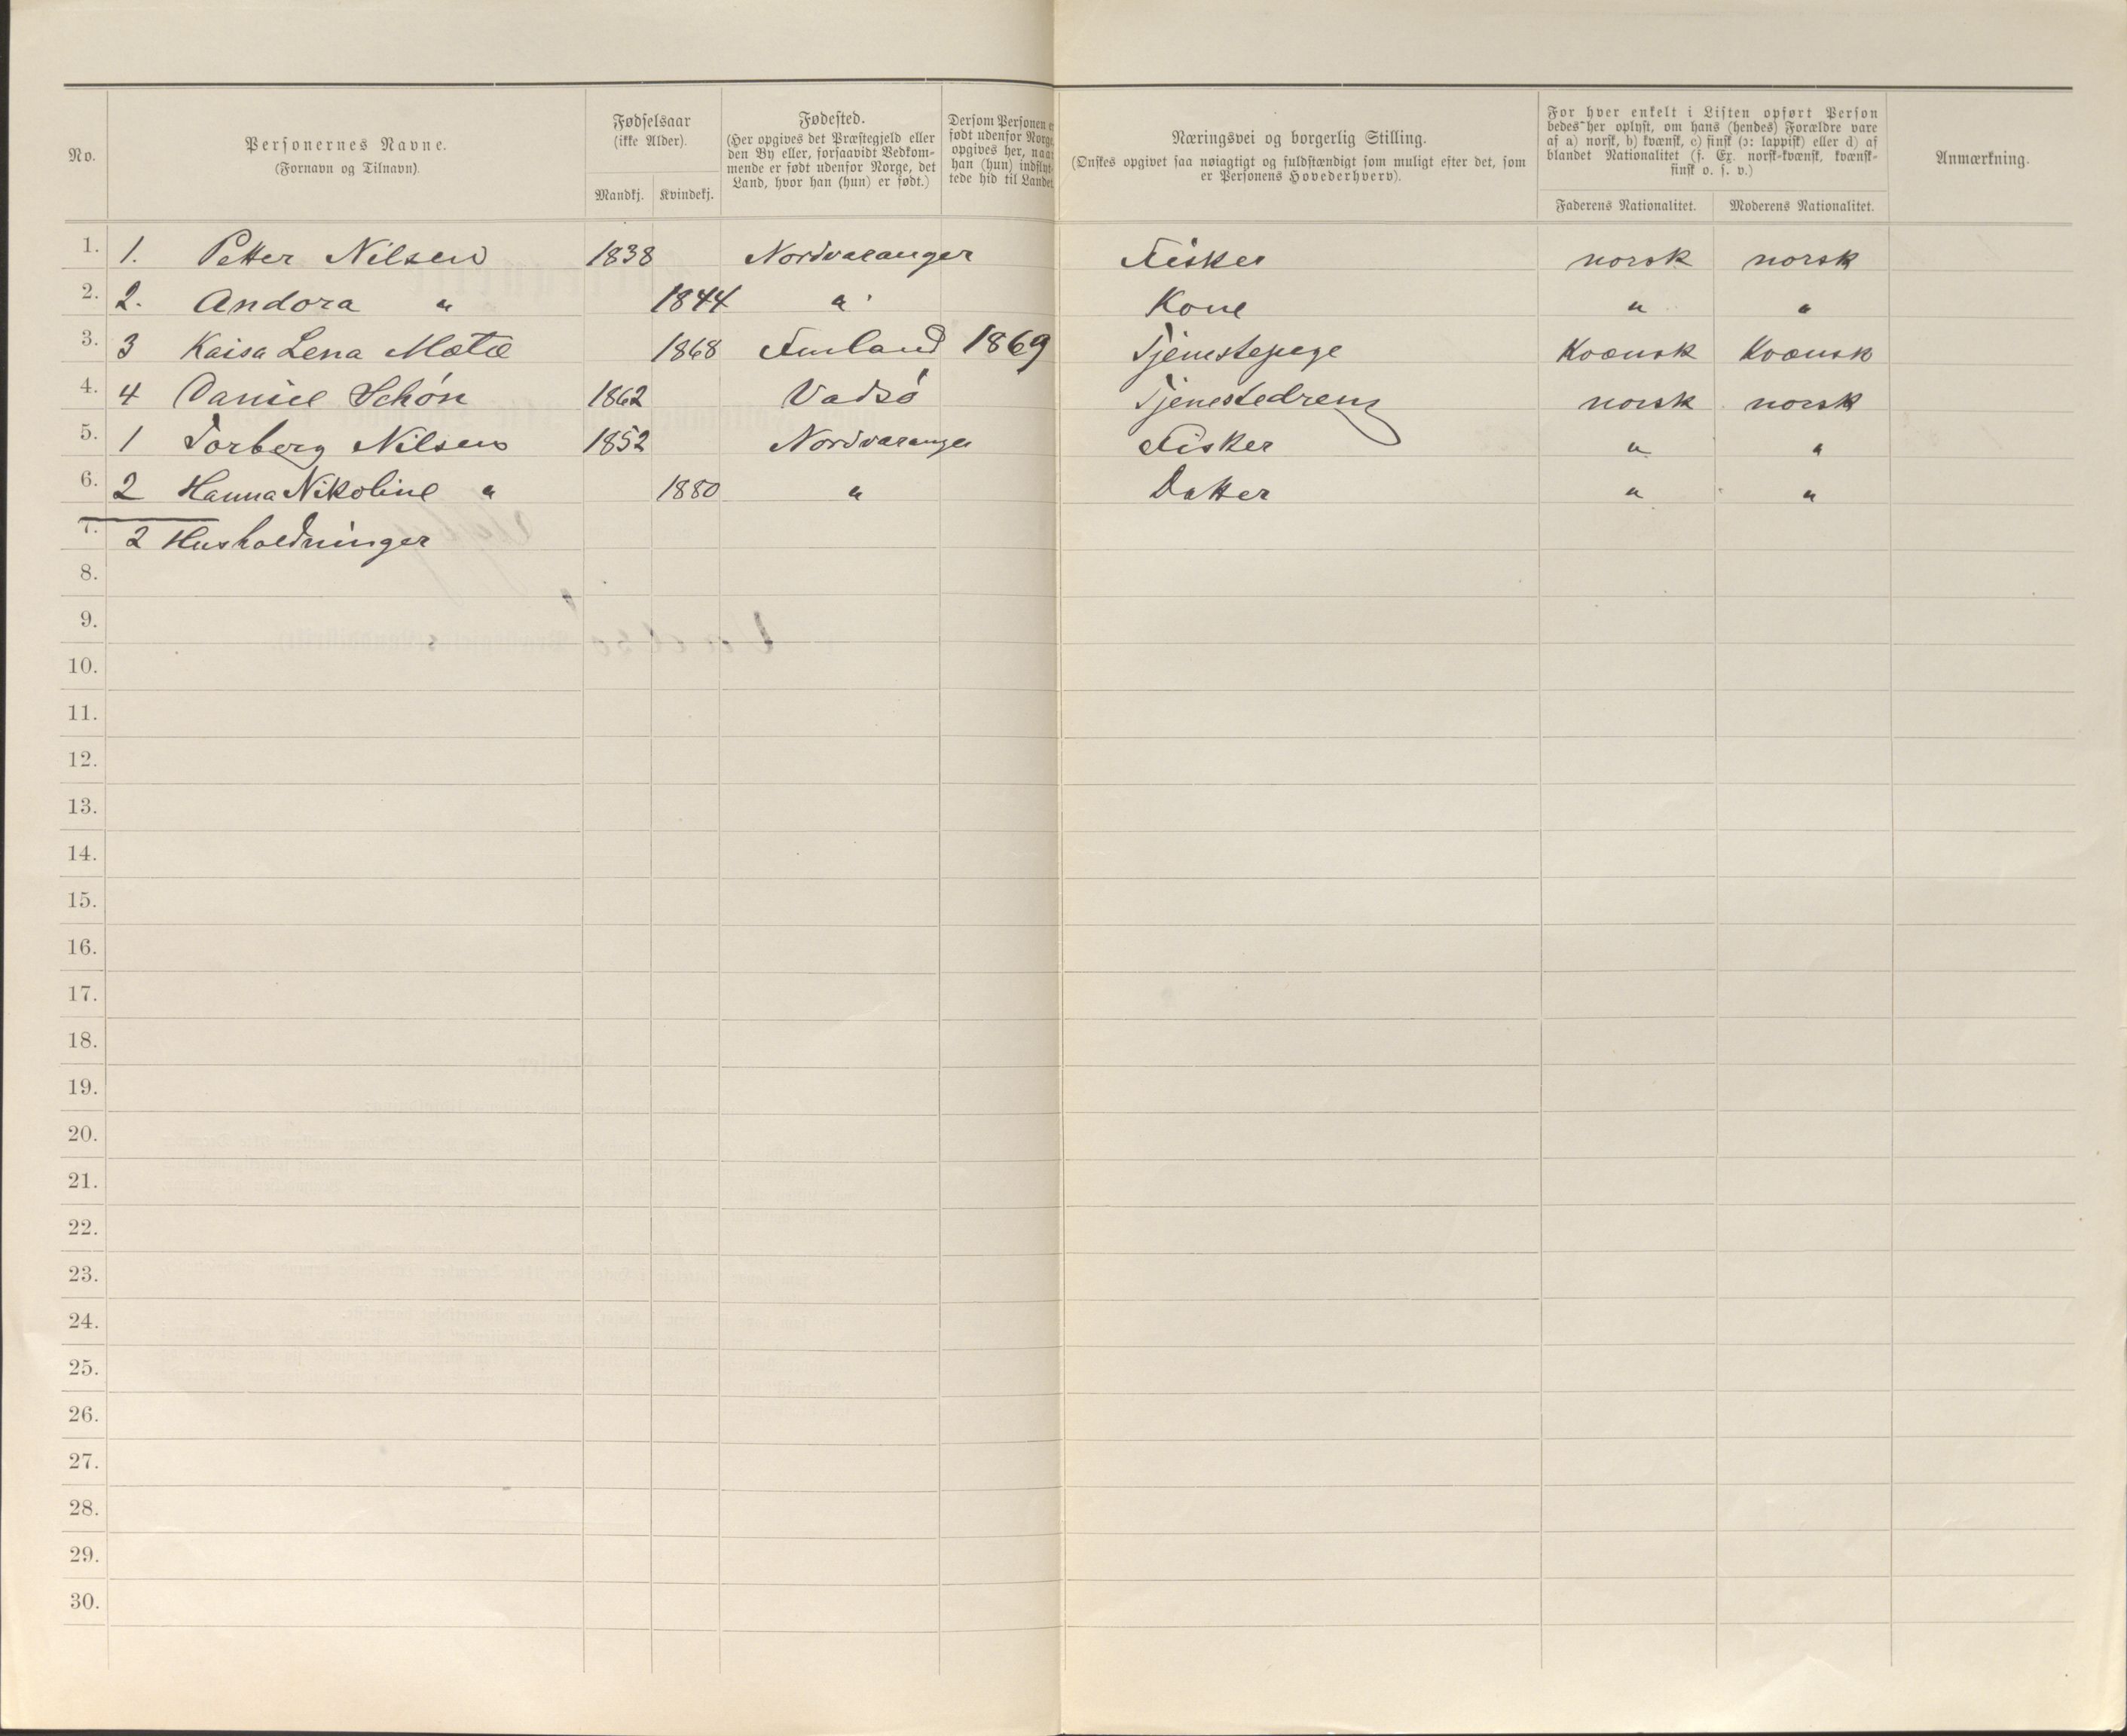 No.
Personernes Navne.
(Fornavn og Tilnavn).
Fødselsaar
(ikke Alder).
Mandkj. Kvindekj.
Fødested.
(Her opgives det Præstegjeld eller
den By eller, forsaavidt Vedkom-
mende er født udenfor Norge, det
Land, hvor han (hun) er født.)
Dersom Personen e
født udenfor Norge,
opgives her, naar
han (hun) indflyt-
tede hid til Landet
Næringsvei og borgerlig Stilling.
(Ønskes opgivet saa nøiagtigt og fuldstændigt som muligt efter det, som
er Personens Hovederhverv).
For hver enkelt i Listen opført Person
bedes her oplyst, om hans (hendes) Forældre vare
af a) norsk, b) kvænsk, c) finsk (ɔ: lappisk) eller d) af
blandet Nationalitet (f. Ex. norsk-kvænsk, kvænsk-
finsk o. s. v.)
Faderens Nationalitet. Moderens Nationalitet.
Anmærkning.
1. 1. Petter Nilsen 1838 Nordvaranger Fisker norsk norsk
2. 2. Andora " 1844 " Kone " "
3. 3 Kaisa Lena 1868 Finland 1869 Tjenestepige Kvænsk Kvænsk
4. 4 Daniel Schøn 1862 Vadsø Tjenestedreng norsk norsk
5. 1 Torberg Nilsen 1852 Nordvaranger Fisker " "
6. 2 Hanna Nikoline " 1880 " Datter " "
7. 2 Husholdninger
8.
9.
10.
11.
12.
13.
14.
15.
16.
17.
18.
19.
20.
21.
22.
23.
24.
25.
26.
27.
28.
29.
30.